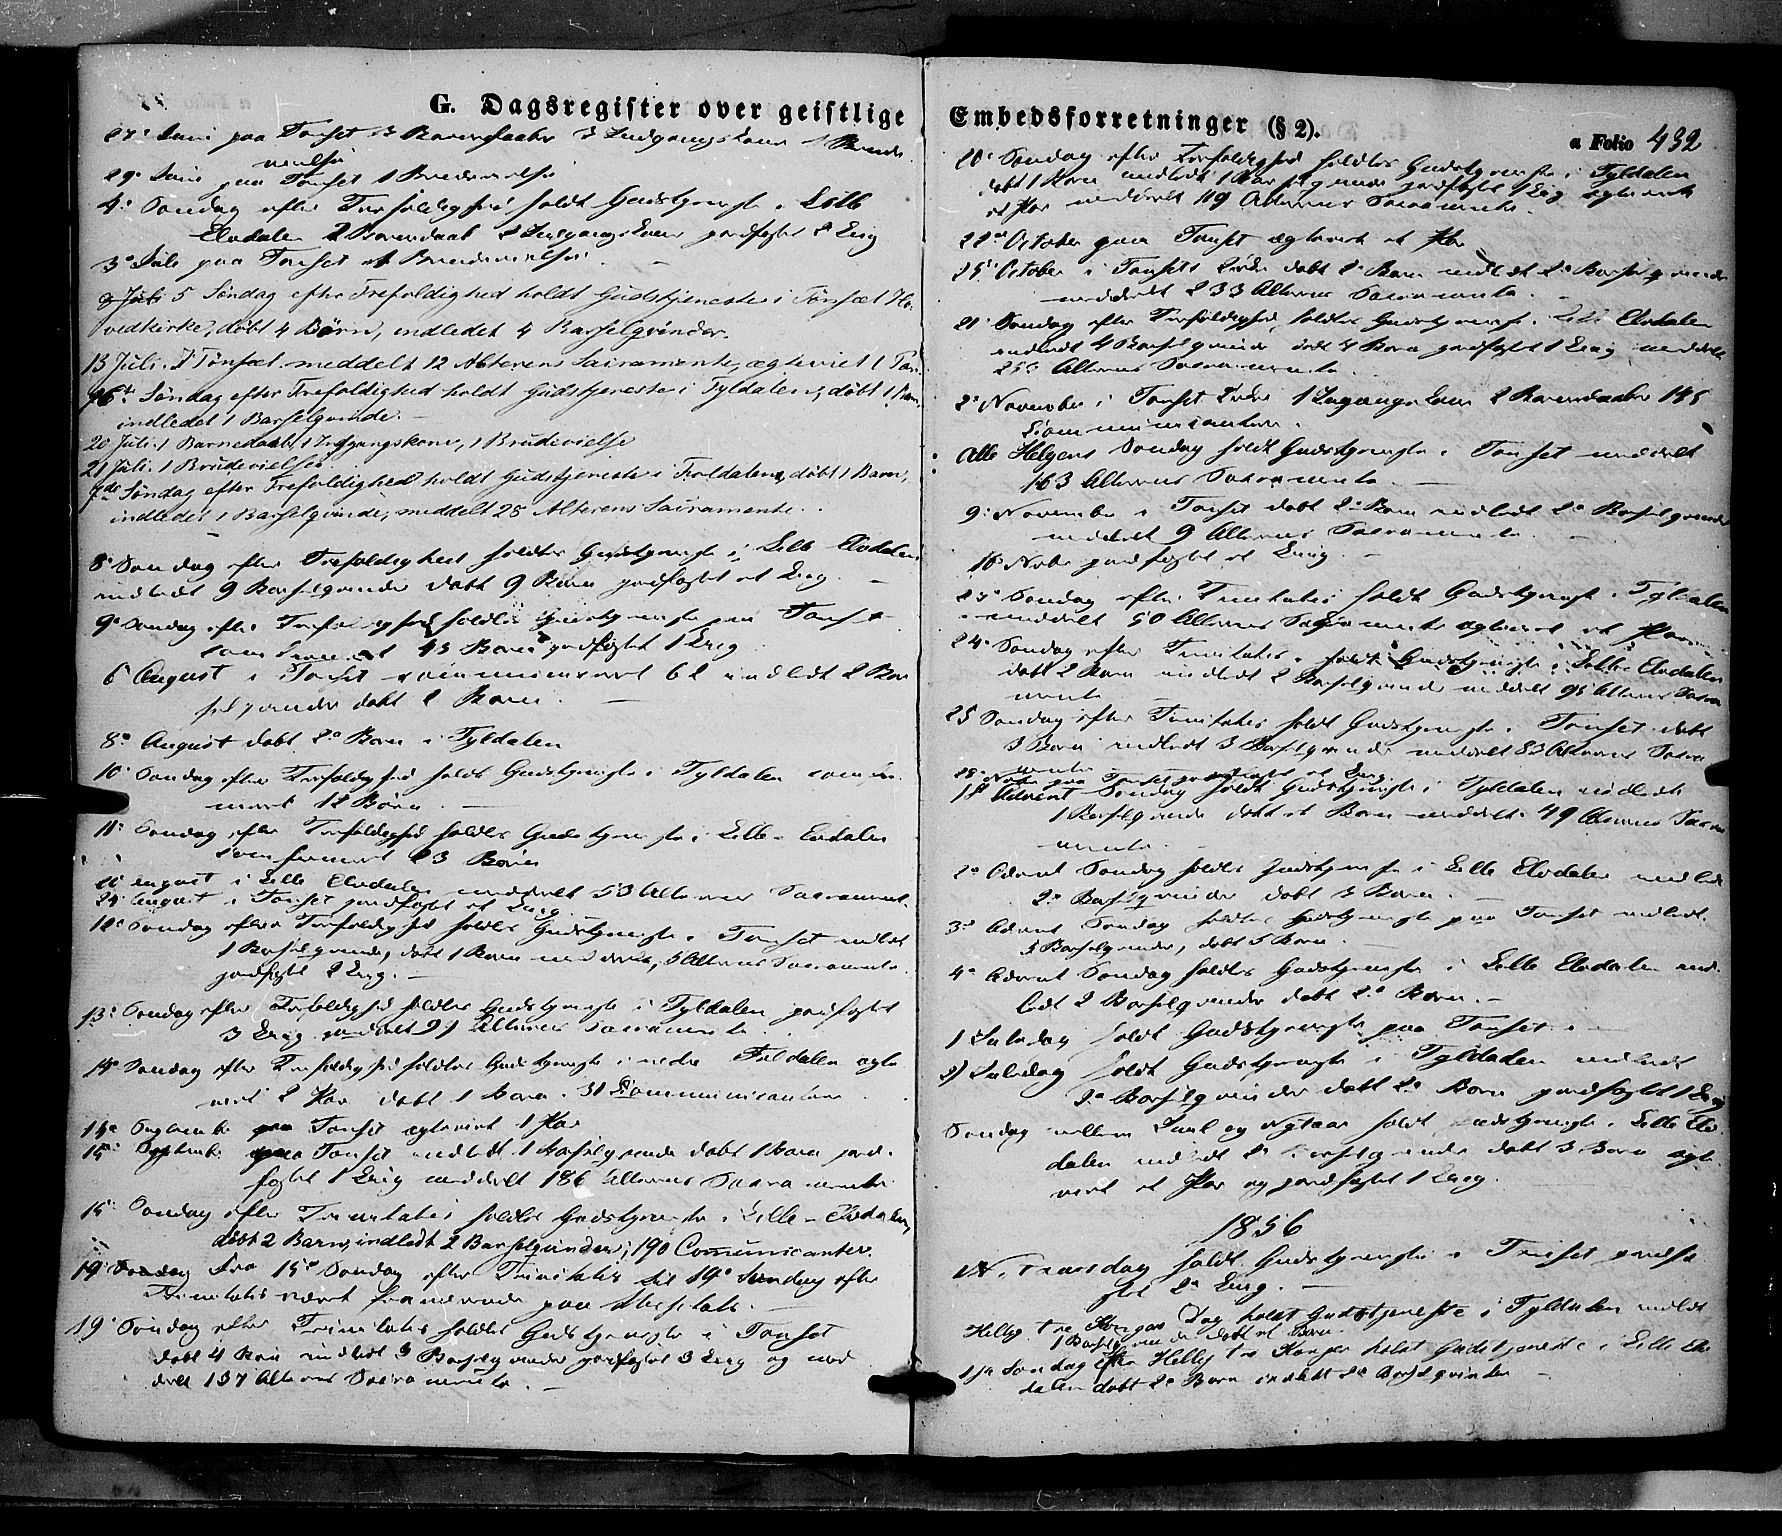 G. Dagsregister over geistlige
27 Juni paa Tønset 3 Barnedaaber 3 Indgangskoner 1 Brude-
vielse
29 Juni paa Tønset 1 Brudevielse
4 Søndag efter Trefoldighed holdt Gudstjeneste i Lille
Elvdalen 2 Barnedaab 2 Indgangskoner jordfæstet 2 Liig
3 Juli paa Tønset et Brudevielse.
8 Juli 5 Søndag efter Trefoldighed holdt Gudstjeneste i Tønsæt Ho-
vedkirke, døbt 4 Børn, indledet 4 Barselqvinder.
13 Juli. I Tønsæt meddelt 12 Alterens Sacramente, ægteviet 1 Par.
6te Søndag efter Trefoldighed holdt Gudstjeneste i Tyldalen, døbt 1 Barn,
indledet 1 Barselqvinde.
20 Juli. 1 Barnedaab, 1 Indgangskone, 1 Brudevielse
21 Juli. 1 Brudevielse.
7de Søndag efter Trefoldighed holdt Gudstjeneste i Tyldalen, døbt 1 Barn,
indledet 1 Barselqvinde, meddelt 28 Alterens Sacramente.
8 Søndag efter Trefoldighed holdtes Gudstjeneste i Lille Elvdalen
indledt 9 Barselqvinder døbt 9 Børn jordfæstet et Liig.
9 Søndag efter Trefoldighed holdtes Gudstjeneste paa Tønset
confirmeret 43 Børn jordfæstet 1 Liig
6 August i Tønset communiceret 62 indledt 2 Bar
selqvinder døbt 2 Børn.
8 August døbt 2 Børn i Tyldalen
10 Søndag efter Trefoldighed holdt Gudstjeneste i Tyldalen confir
meret 12 Børn.
11 Søndag efter Trefoldighed holdtes Gudstjeneste i Lille-Elvdalen
confirmeret 23 Børn
August i Lille Elvdalen meddeelt 53 Alterens Sacrament.
August i Tønset jordfæstet et Liig
12 Søndag efter Trefoldighed holdtes Gudstjeneste i Tønset indledt
1 Barselqvinde, døbt 1 Barn meddeelt Alterens Sacramente
jordfæstet 2 Liig.
13 Søndag efter Trefoldighed holdtes Gudstjeneste i Tyldalen jordfæstet
3 Liig meddeelt 91 Alterens Sacramente
14 Søndag efter Trefoldighed holdtes Gudstjeneste i nedre Tyldalen ægte
viet 2 Par døbt 1 Barn. 31 Communicanter
14 September paa Tønset ægteviet 1 Par
15 September paa Tønset indledt 1 Barselqvinde døbt 1 Barn jord-
fæstet 1 Liig meddeelt 186 Alterens Sacramente
15 Søndag efter Trinitatis holdtes Gudstjeneste i Lille-Elvdalen,
døbt 2 Børn, indledt 2 Barselqvinder, 190 Comunicanter.
19 Søndag Fra 15 Søndag efter Trinitatis til 19 Søndag efter
Trinitatis været fraværende paa
19 Søndag efter Trinitatis holdtes Gudstjeneste i Tønset
døbt 4 Børn indledt 3 Barselqvinder jordfæstet 3 Liig og med
deelt 137 Alterens Sacramente.
Embedsforretninger (§ 2).
a Folio 432
20 Søndag efter Trefoldighed holdtes Gudstjeneste i Tyldalen
døbt 1 Barn indledt 1 Barselqvinde jordfæstet 1 Liig ægteviet
et Par meddeelt 119 Alterens Sacramente.
22 October paa Tønset ægteviet et Par
25 October i Tønsets Kirke døbt 2 Børn indledt 2 Barselqvinder
meddeelt 233 Alterens Sacramente.
21 Søndag efter Trefoldighed holdtes Gudstjeneste i Lille Elvdalen
indledt 4 Barselqvinder døbt 4 Børn jordfæstet 1 Liig meddeelt
Alterens Sacramente
2 November i Tønset Kirke 1 Indgangskone 2 Barnedaaber 145
Communicanter.
Alle Helgens Søndag holdt Gudstjeneste i Tønset meddelt
163 Alterens Sacramente
9 November i Tønset døbt 2 Børn indledt 2 Barselqvinder
meddeelt 9 Alterens Sacramente.
16 Novbr jordfæstet et Liig.
23 Søndag efter Trinitatis holdt Gudstjeneste i Tyldalen
meddeelt 50 Alterens Sacramente ægteviet et Par
24 Søndag efter Trinitatis holdt Gudstjeneste i Lille Elvdalen
døbt 2 Børn indledt 2 Barselqvinder meddelt 95 Alterens Sacra
mente
25 Søndag efter Trinitatis holdt Gudstjeneste i Tønset døbt
3 Børn indledt 3 Barselqvinder meddeelt 83 Alterens Sacra
mente
28 Novbr paa Tønset jordfæstet et Liig.
1ste Advent Søndag holdt Gudstjeneste i Tyldalen indledt
1 Barselqvinde døbt et Barn meddeelt 49 Alterens Sacra
mente.
2 Advent Søndag holdtes Gudstjeneste i Lille Elvdalen indledt
2 Barselqvinder døbt 2 Børn.
3 Advent Søndag holdtes Gudstjeneste paa Tønset indledt.
3 Barselqvinder, døbt 5 Børn.
4 Advent Søndag holdtes Gudstjeneste i Lille Elvdalen ind-
ledt 2 Barselqvinder døbt 2 Børn.
1 Juledag holdt Gudstjeneste paa Tønset.
2 Juledag holdt Gudstjeneste i Tyldalen indledt
2 Barselqvinder døbt 2 Børn jordfæstet 1 Liig
Søndag mellem Juul og Nytaar holdt Gudstjeneste i Lille Elv
dalen indledt 2 Barselqvinder døbt 3 Børn ægte
viet et Par og jordfæstet 1 Liig.
1856
Nytaarsdag holdt Gudstjeneste i Tønset jordfæ
stet 2 Liig.
Hellig tre Kongers Dag holdt Gudstjeneste i Tyldalen indledt
1 Barselqvinde døbt et Barn.
1ste Søndag efter Hellig tre Konger holdt Gudstjeneste i Lille Elv
dalen døbt 2 Børn indledt 2 Barselqvinder